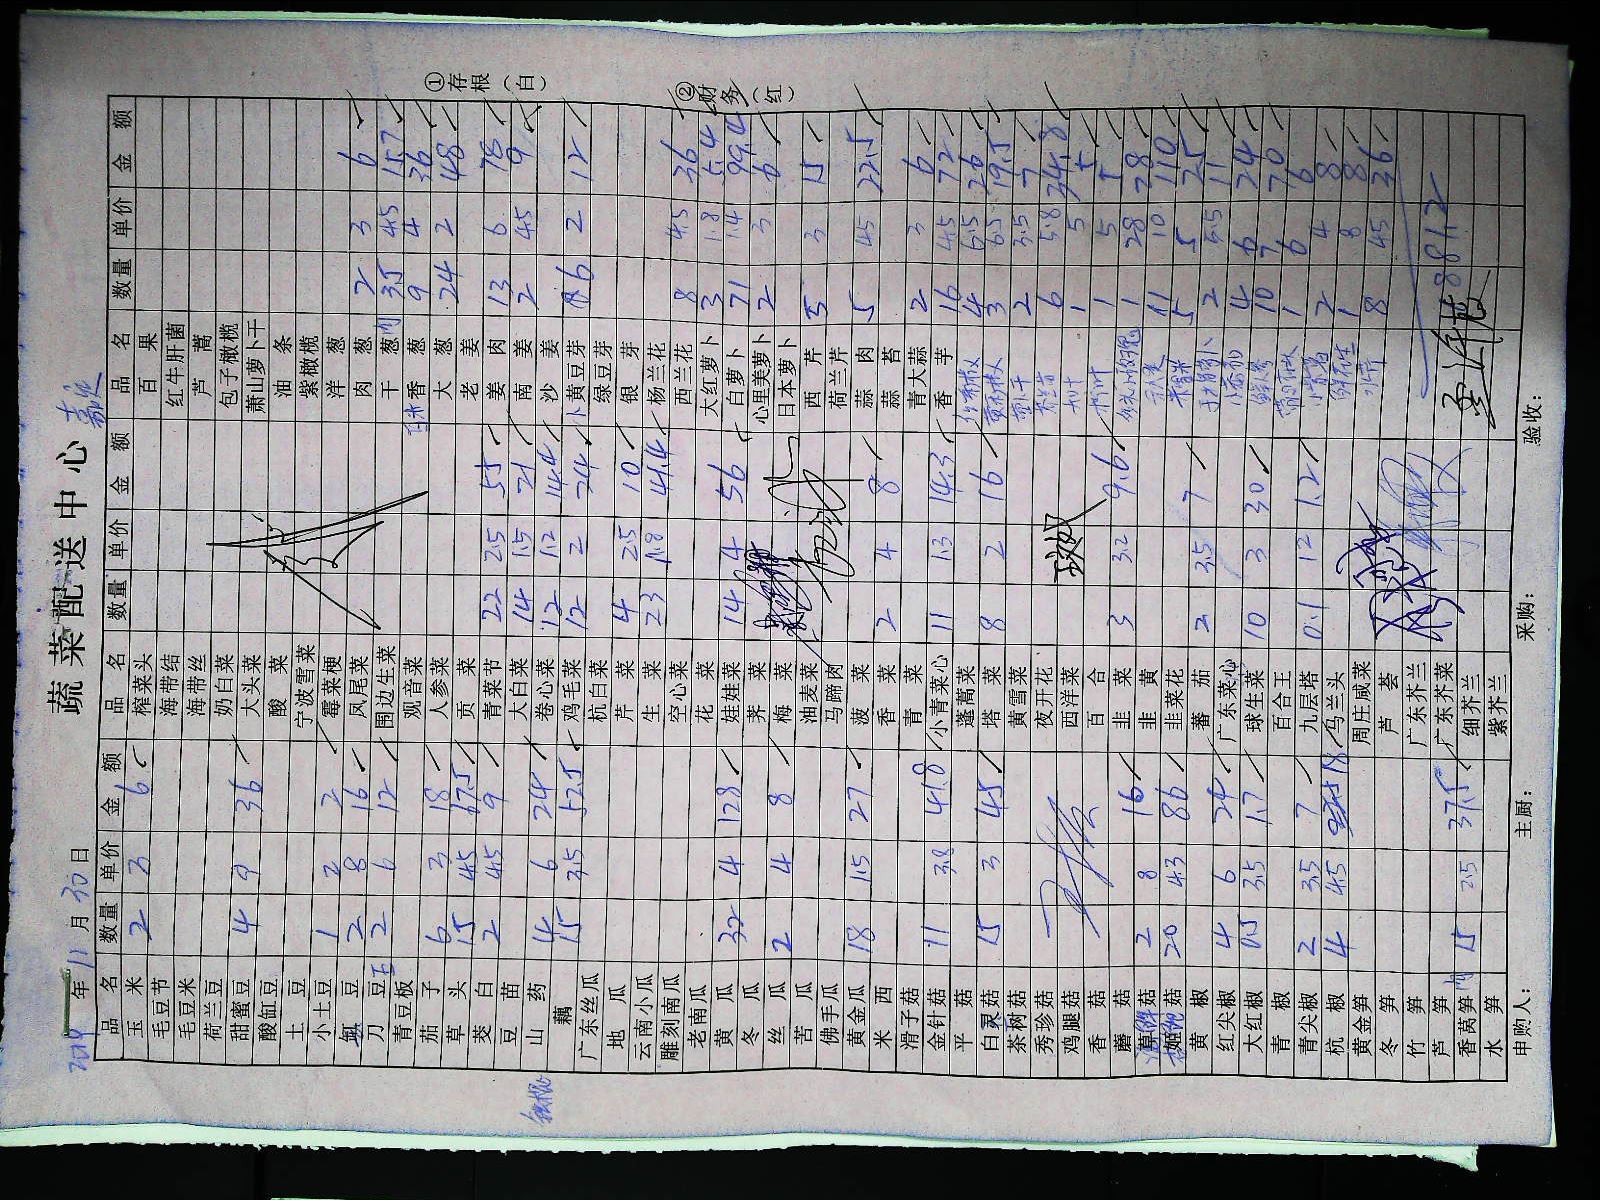 蔬菜配送中心
年 11 月 30 日
品名 数量 单价 金额 品名 数量 单价 金额 品名 数量 单价 金额
玉米 2 3 6 榨菜头 百果
毛豆节 海带结 红牛肝菌
毛豆米 海带丝 芦蒿
荷兰豆 奶白菜 包子橄榄
甜蜜豆 4 9 36 大头菜 萧山萝卜干
酸缸豆 酸菜 油条
土豆 宁波雪菜 紫橄榄
小土豆 1 2 2 霉菜梗 洋葱
豆 2 8 16 凤尾菜 肉葱 2 3 6
刀豆 2 6 12 围边生菜 干葱 3.5 4.5 15.7
青豆板 观音菜 香葱 9 4 36
茄子 6 3 18 人参菜 大葱 24 2 48
草头 15 4.5 67.5 贡菜 老姜
茭白 2 4.5 9 青菜节 22 2.5 55 姜肉 13 6 78
豆苗 大白菜 14 1.5 21 南姜 2 4.5 9
山药 4 6 24 卷心菜 12 1.2 14.4 沙姜
藕 15 3.5 52.5 鸡毛菜 12 2 24 黄豆芽 6 2 12
广东丝瓜 杭白菜 绿豆芽
地瓜 芹菜 4 2.5 10 银芽
云南小瓜 生菜 23 1.8 41.4 杨兰花
雕刻南瓜 空心菜 西兰花 8 4.5 36
老南瓜 花菜 大红萝卜 3 1.8 5.4
黄瓜 32 4 128 娃娃菜 14 4 56 白萝卜 71 1.4 99.4
冬瓜 荠菜 心里美萝卜 2 3 6
丝瓜 2 4 8 梅菜 日本萝卜
苦瓜 油麦菜 西芹 5 3 15
佛手瓜 马蹄肉 荷兰芹
黄金瓜 18 1.5 27 菠菜 蒜肉 5 4.5 22.5
米西 香菜 2 4 8 蒜苔
滑子菇 青菜 青大蒜 2 3 6
金针菇 11 3.8 41.8 小青菜心 11 1.3 14.3 香芋 16 4.5 72
平菇 蓬蒿菜 4 6.5 26
白灵菇 15 3 45 塔菜 8 2 16 3 6.5 19.5
茶树菇 黄雪菜 2 3.5 7
秀珍菇 夜开花 6 5.8 34.8
鸡腿菇 西洋菜 1 5 5
香菇 百合 1 5 5
蘑菇 韭菜 3 3.2 9.6 1 28 28
菇 2 8 16 韭黄 11 10 110
菇 20 4.3 86 韭菜花 5 5 25
黄椒 番茄 2 3.5 7 2 5.5 11
红尖椒 4 6 24 广东菜心 4 6 24
大红椒 0.5 3.5 1.7 球生菜 10 3 30 10 7 70
青椒 百合王 1 6 6
青尖椒 2 3.5 7 九层塔 0.1 12 1.2 2 4 8
杭椒 4 4.5 18 乌兰头 1 8 8
黄金笋 周庄咸菜 8 4.5 36
冬笋 芦荟
竹笋 广东芥兰
芦笋 广东芥菜
香莴笋 15 2.5 37.5 细芥兰
水笋 紫芥兰
申购人： 主厨： 采购： 验收：
①存根（白）
②财务（红）